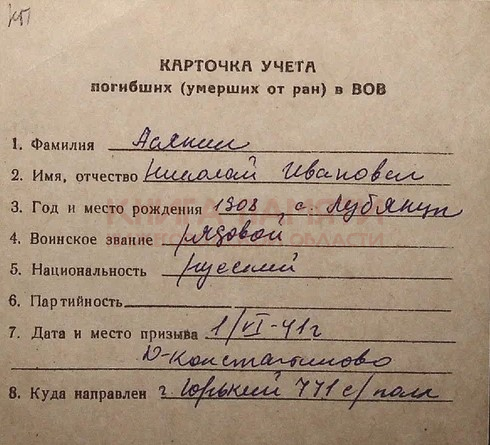 КАРТОЧКА УЧЕТА
погибших (умерших от ран) в ВОВ
1. Фамилия
2. Имя, отчество Николай Иванович
3. Год и место рождения 1908 с.
4. Воинское звание рядовой
5. Национальность русский
6. Партийность
7. Дата и место призыва 1/VI-41г
Д-Константиново
8. Куда направлен г. Горький 771 с/полк